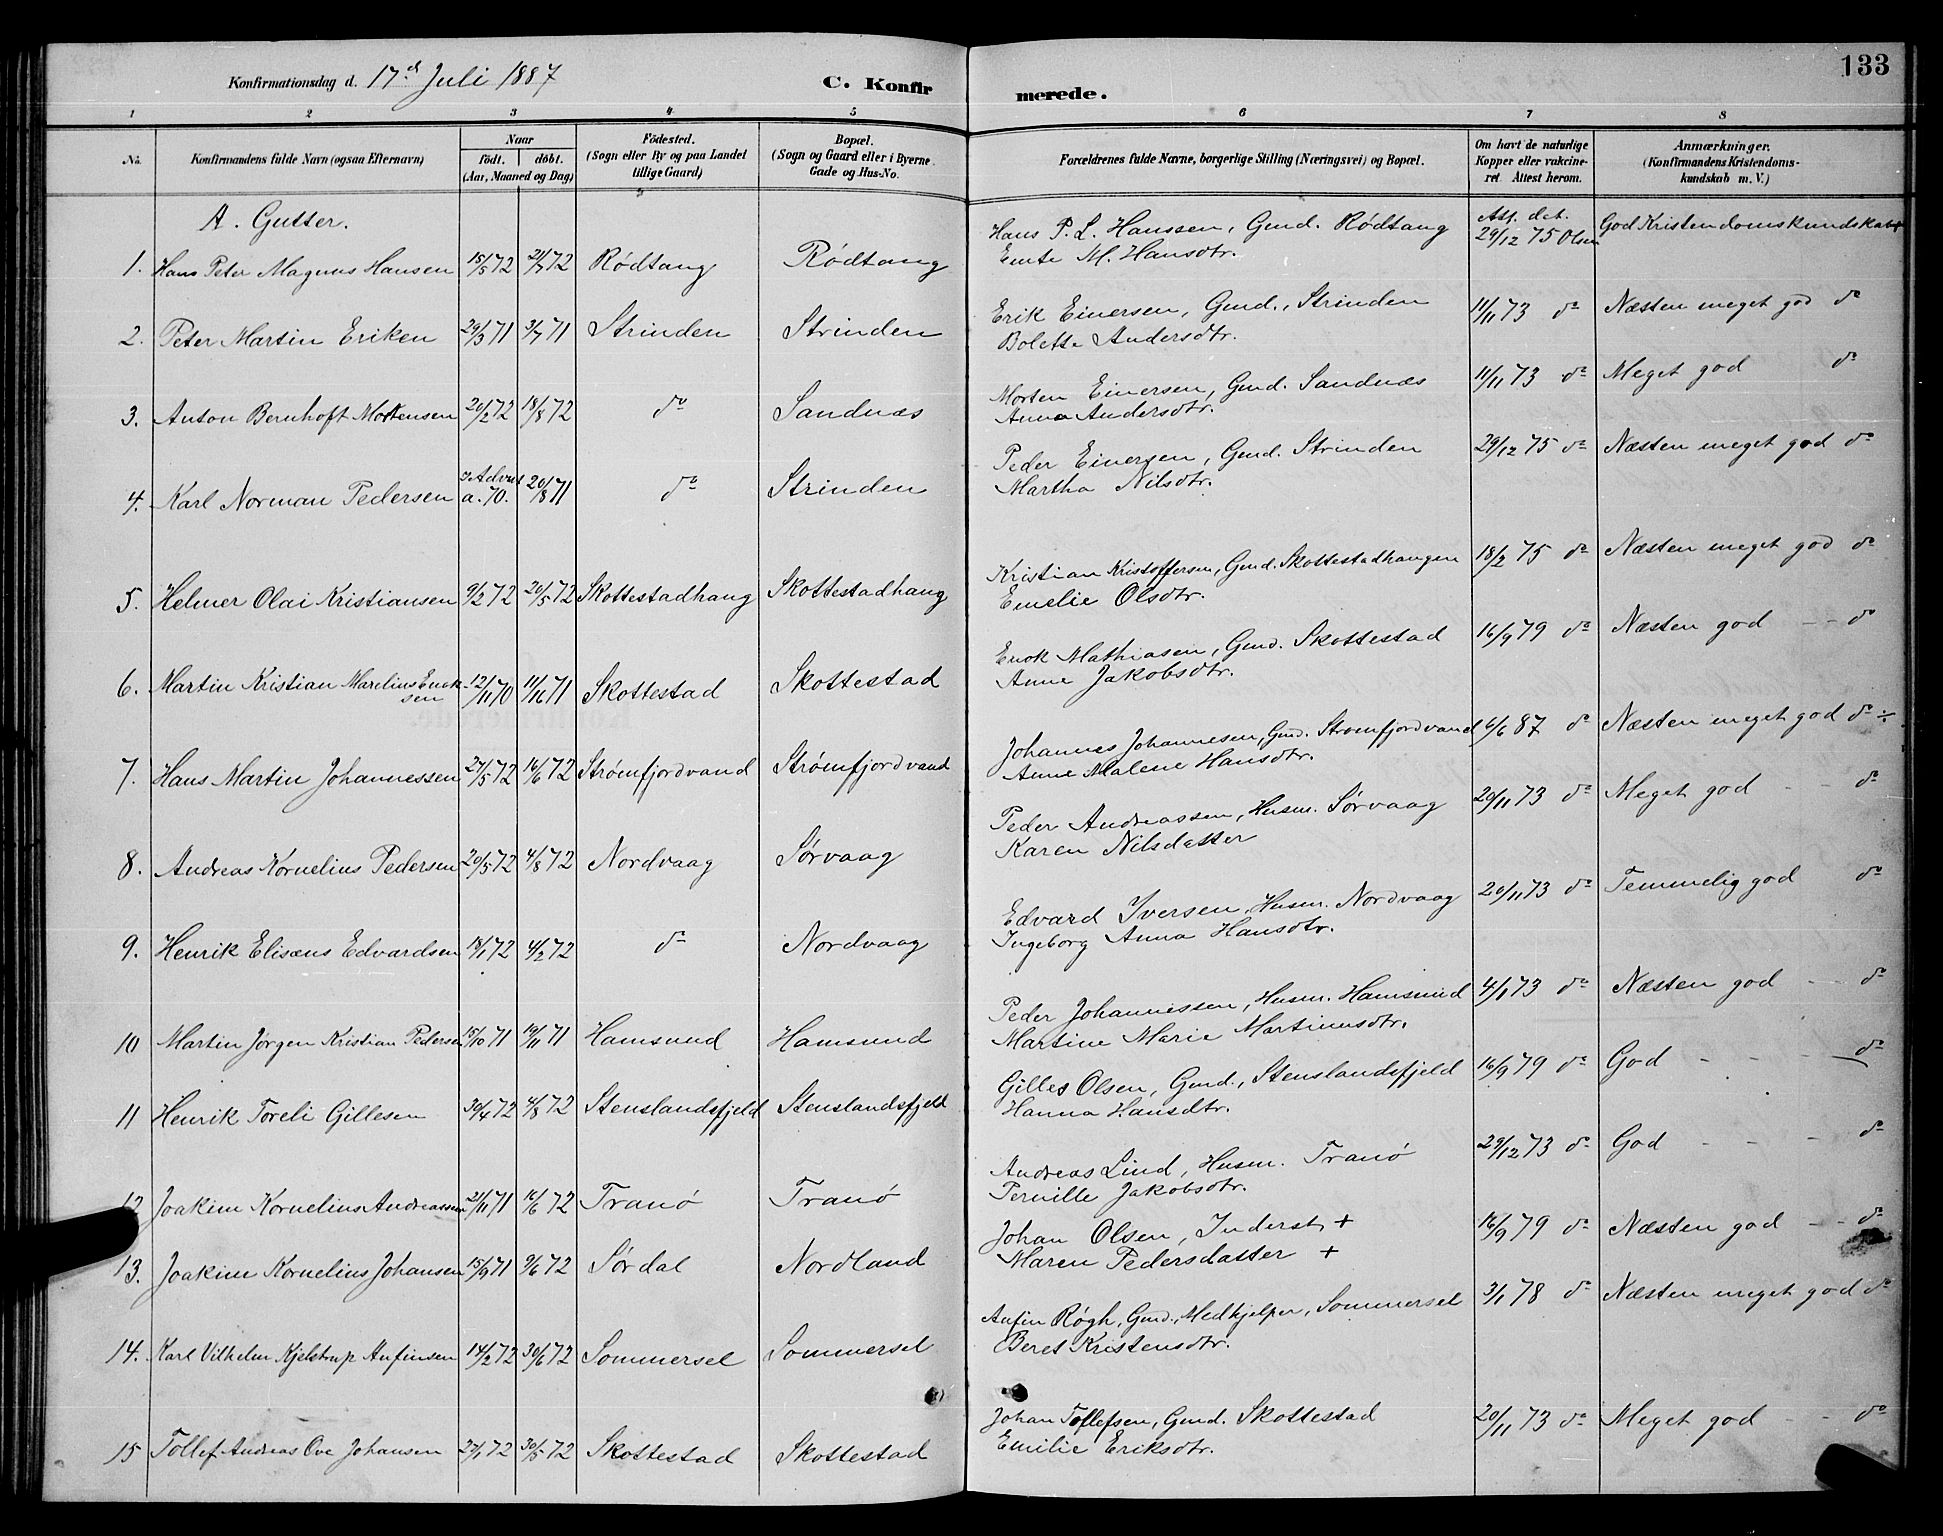 133
Konfirmationsdag d. 17d Juli 1887 C. Konfir merede.
1 2 3 4 5 6 7 8
No. Konfirmandens fulde Navn (ogsaa Efternavn) Naar født. døbt. (Aar, Maaned og Dag) Fødested. (Sogn eller By og paa Landet tillige Gaard) Bopæl. (Sogn og Gaard eller i Byerne Gade og Hus-No. Forældrenes fulde Navne, borgerlige Stilling (Næringsvei) og Bopæl. Om havt de naturlige Kopper eller vakcineret. Attest herom. Anmærkninger. (Konfirmandens Kristendomskundskab m. V.)
A. Gutter.
1. Hans Peter Magnus Hansen 15/5 72 21/7 72 Rødtang Rødtang Hans P. L. Hanssen, Gmd. Rødtang Att. det. God Kristendomskundskab
Emte M. Hansdtr. 29/12 75 Olsen
2. Peter Martin Eriken 29/3 71 3/7 71 Strinden Strinden Erik Einersen, Gmd., Strinden 11/11 73 do Næsten meget god do
Bolette Andersdtr.
3. Anton Bernhoft Mortensen 20/2 72 18/8 72 do Sandnæs Morten Einersen, Gmd. Sandnæs 11/11 73 do Meget god do
Anna Andersdtr.
4. Karl Norman Pedersen Advent a. 70. 20/8 71 do Strinden Peder Einersen, Gmd. Strinden 29/12 75 do Næsten meget god do
Martha Nilsdtr.
5. Helmer Olai Kristiansen 9/2 72 20/5 72 Skottestadhaug Skottestadhaug Kristian Kristoffersen, Gmd. Skottestadhaugen 18/2 75 do Næsten meget god do
Emelie Olsdtr.
6. Martin Kristian Marelius Enoksen 12/11 70 11/11 71 Skottestad Skottestad Enok Mathiasen, Gmd. Skottestad 16/9 79 do Næsten god - - do
Anne Jakobsdtr.
7. Hans Martin Johannessen 27/5 72 16/6 72 Strømfjordvand Strømfjordvand Johannes Johannesen, Gmd. Strømfjordvand 6/6 87 do Næsten meget god do ÷
Anne Malene Hansdtr.
8. Andreas Kornelius Pedersen 20/5 72 4/8 72 Nordvaag Sørvaag Peder Andreassen, Husm. Sørvaag 20/11 73 do Meget god - - do
Karen Nilsdatter
9. Henrik Elisæus Edvardsen 18/1 72 4/2 72 do Nordvaag Edvard Iversen, Husm. Nordvaag 20/11 73 do Temmelig god do
Ingeborg Anna Hansdtr.
10 Martin Jørgen Kristian Pedersen 15/10 71 19/11 71 Hamsund Hamsund Peder Johannessen, Husm. Hamsund 4/1 73 do Næsten god - - do
Martine Marie Martinusdtr.
11 Henrik Toreli Gillesen 30/4 72 4/8 72 Stenslandsfjeld Stenslandsfjeld Gilles Olsen, Gmd., Stenslandsfjeld 16/9 79 do God - - - do
Hanna Hansdtr.
12 Joakim Kornelius Andreassen 21/11 71 16/6 72 Tranø Tranø Andreas Lind, Husm. Tranø 29/12 73 do God - - - do
Pernille Jakobsdtr.
13. Joakim Kornelius Johansen 15/9 71 9/6 72 Sørdal Nordland Johan Olsen, Inderst, + 16/9 79 do Næsten god - - do
Maren Pedersdatter +
14. Karl Vilhelm Kjelstrup Anfinsen 14/2 72 30/6 72 Sommersel Sommersel Anfin Røgh, Gmd., Medhjelper, Sommersel 3/1 78 do Næsten meget god do
Beret Kristensdtr.
15 Tollef Andreas Ove Johansen 23/1 72 30/5 72 Skottestad Skottestad Johan Tollefsen, Gmd. Skottestad 20/11 73 do Meget god - do
Emilie Eriksdtr.